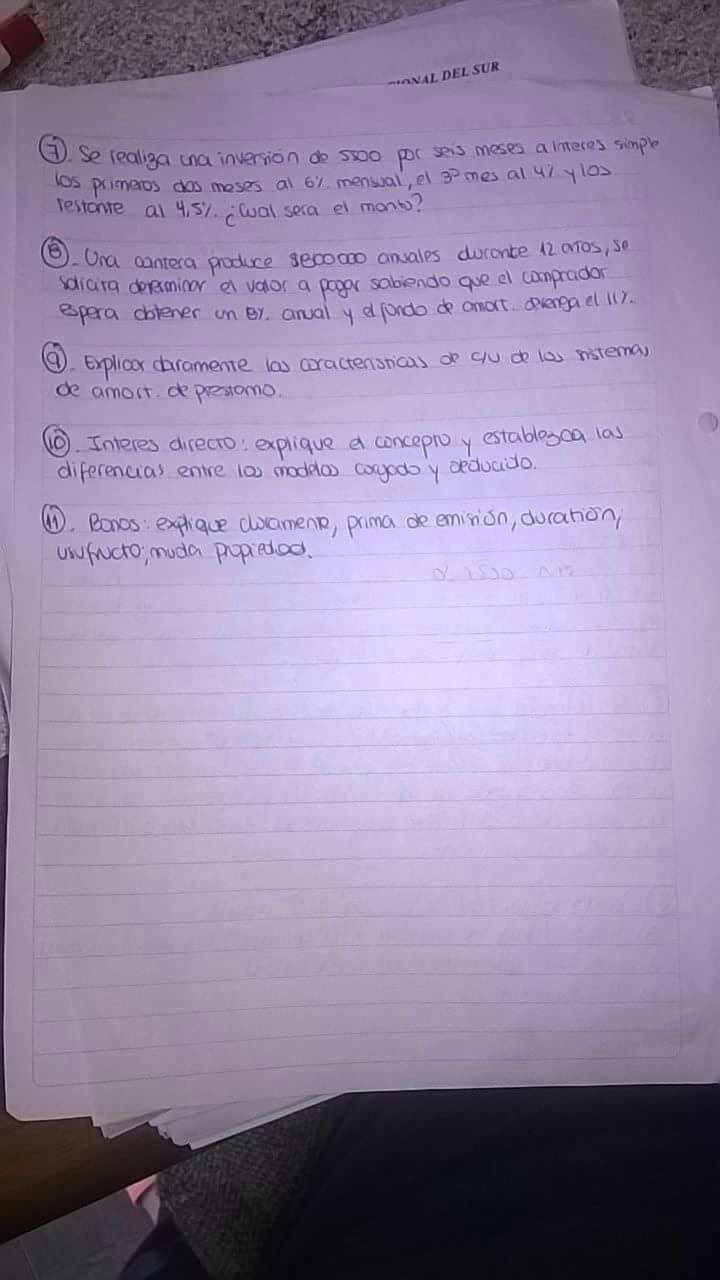 IONAL DEL SUR
⑦. Se realiza una inversión de 5500 por seis meses a interes simple
los primeros dos meses al 6% mensual, el 3º mes al 4% y los
restante al 4,5%. ¿Cual sera el monto?
⑧. Una cantera produce $600000 anuales durante 12 años, se
solicita determinar el valor a pagar sabiendo que el comprador
espera obtener un 8% anual y el fondo de amort. devenga el 11%.
⑨. Explicar claramente las caracteristicas de c/u de los sistemas
de amort. de prestamo.
⑩. Interes directo: explique el concepto y establezca las
diferencias entre los modelos cargado y deducido.
⑪. Bonos: explique claramente, prima de emisión, duration,
usufructo, nuda propiedad.